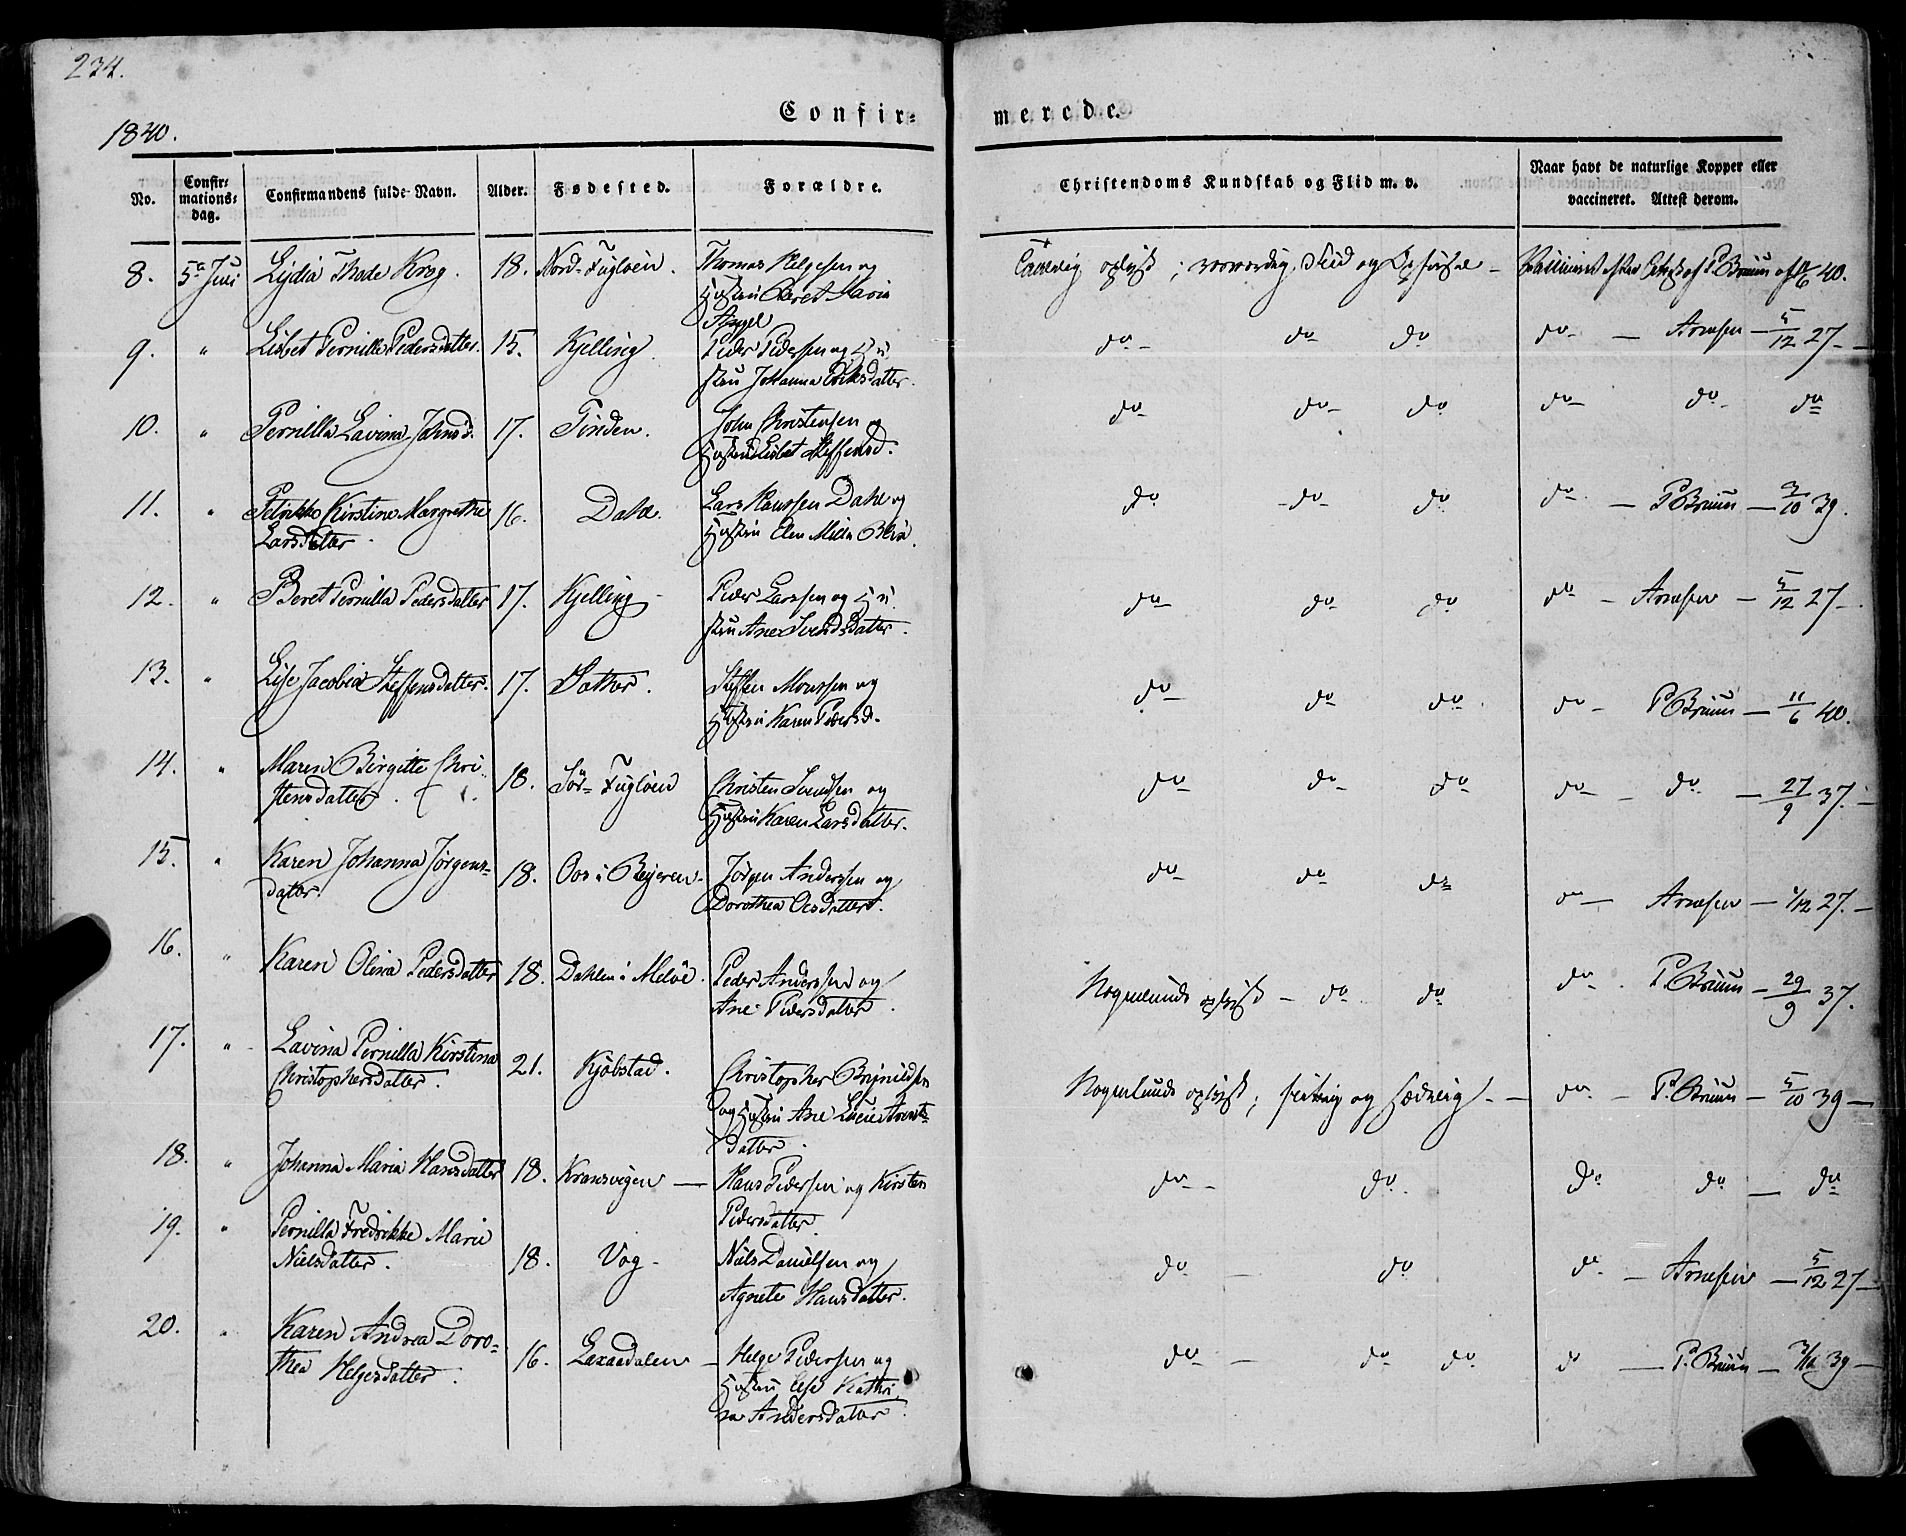 234.
1840.
Confirmerede.
No. Confirmationsdag. Confirmandens fulde Navn. Alder. Fødested. Forældre. Christendoms Kundskab og Flid m. v. Naar havt de naturlige Kopper eller vaccineret. Attest derom.
8. 5te Juli Lydia Thode Krog. 18. Nord-Fugløen. Thomas Helgesen og
Hustru Beret Maria
Angel
oplyst; og Opførsel — Vaccineret efter Attest af P Bruun af 11/6 40.
9. " Lisbet Pernille Pedersdatter. 15. Kjelling. Peder Pedersen og Hu
stru Johanna Eriksdatter.
do do do do — Arnesen — 5/12 27 —
10. " Pernilla Lavina Johnsd. 17. Tinden. John Christensen og
Hustru Lisbet Steffensd.
do do do do do do
11. " Petrikke Kirstine Margrethe
Larsdatter. 16. Dahl. Lars Hanssen Dahl og
Hustru Elen
do do do do — P Bruun — 3/10 39.
12. " Beret Pernilla Pedersdatter 17. Kjelling Peder Larssen og Hu
stru Ane Svendsdatter.
do do do do — Arnesen — 5/12 27 —
13. " Lise Jacobia Steffensdatter. 17. Sather. Steffen Monssen og
Hustru Karen Pedersd.
do do do do — P Bruun — 11/6 40.
14. " Maren Birgitte Chri
stensdatter. 18. Sör-Fuglöen Christen Svendsen og
Hustru Karen Larsdatter.
do do do do — do — 27/9 37. —
15. " Karen Johanna Jörgens-
datter. 18. Oos i Beijeren. Jörgen Anderssen og
Dorothea Olsdatter.
do do do do — Arnesen — 5/12 27. —
16. " Karen Olina Pedersdatter 18. Dahlen i Melöe. Peder Anderssen og
Ane Pedersdatter.
Nogenlunde oplyst — do do do P Bruun — 29/9 37.
17. " Lavina Pernilla Kirstina
Christophersdatter. 21. Kjöbstad. Christopher Brynildsen
og Hustru Ane Lucie Arnts-
datter.
Nogenlunde oplyst; flittig og sædelig — do — P. Bruun — 5/10 39 —
18. " Johanna Maria Hansdatter 18. Kransvigen — Hans Pedersen og Kirsten
Pedersdatter.
do — do. do do — do
19. " Pernilla Fredrikke Marie
Nielsdatter. 18. Vog. Niels Danielsen og
Agnete Hansdatter.
do — do do — Arnesen — 5/12 27 —
20. " Karen Andrea Doro-
thea Helgesdatter. 16. Laxaadalen — Helge Pedersen og
Hustru Else Kathri
na Andersdatter.
do — do do do — P. Bruun — 3/10 39 —